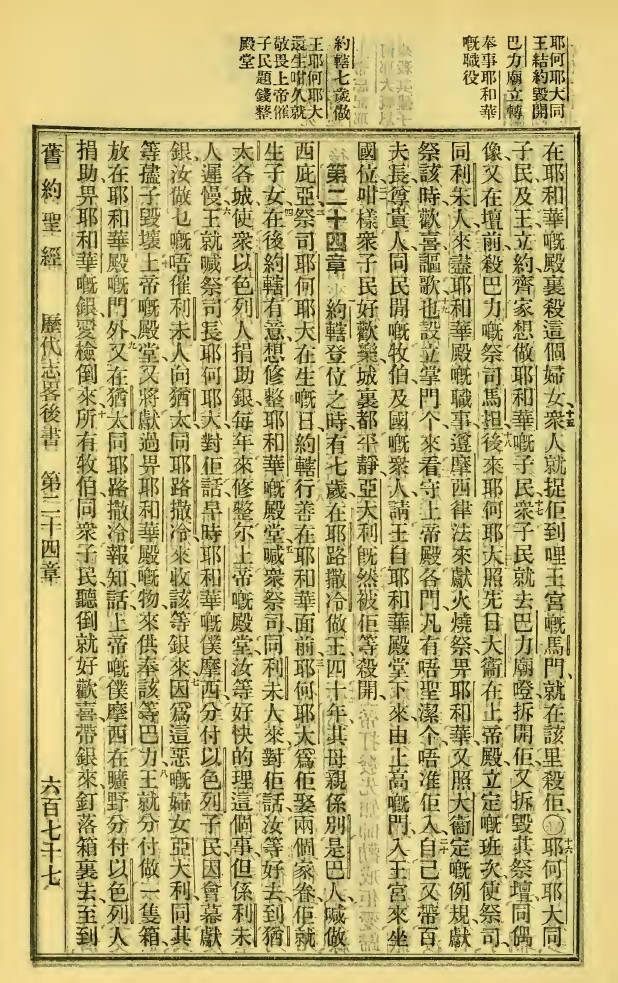 耶何耶大同
王結約毀開
巴力廟立轉
奉事耶和華
嘅職役
約轄七歲做
王耶何耶大
還生咁久就
敬畏上帝催
子民題錢整
殿堂
在耶和華嘅殿裏殺這個婦女、十五衆人就捉佢到哩王宮嘅馬門、就在該里殺佢、〇十六耶何耶大同
子民及王立約齊家想做耶和華嘅子民十七衆子民就去巴力廟噔拆開佢又拆毀其祭壇同偶
像又在壇前殺巴力嘅祭司馬担十八後來耶何耶大照先日大衞在上帝殿立定嘅班次使祭司、
同利未人來盡耶和華殿嘅職事遵摩西律法來獻火燒祭畀耶和華又照大衞定嘅例規獻
祭該時歡喜謳歌也十九設立掌門个來看守上帝殿各門凡有唔聖潔个唔准佢入二十自己又帶百
夫長尊貴人同民開嘅牧伯及國嘅衆人請王自耶和華殿堂下來由上高嘅門入王宮來坐
國位咁樣衆子民好歡樂城裏都平靜亞大利旣然被佢等殺開、
第二十四章 一約轄登位之時有七歲在耶路撒冷做王四十年其母親係別是巴人喊做
西庇亞二祭司耶何耶大在生嘅日約轄行善在耶和華面前三耶何耶大爲佢娶兩個家眷佢就
生子女四在後約轄有意想修整耶和華嘅殿堂五喊衆祭司同利未人來對佢話汝等好去到猶
太各城使衆以色列人捐助銀每年來修整尔上帝嘅殿堂汝等好快的理這個事但係利未
人遲慢六王就喊祭司長耶何耶大對佢話早時耶和華嘅僕摩西分付以色列子民因會幕獻
銀汝做乜嘅唔催利未人向猶太同耶路撒冷來收該等銀來七因爲這惡嘅婦女亞大利同其
等孻子毀壞上帝嘅殿堂又將獻過畀耶和華殿嘅物來供奉該等巴力八王就分付做一隻箱
放在耶和華殿嘅門外九又在猶太同耶路撒冷報知話上帝嘅僕摩西在曠野分付以色列人
捐助畀耶和華嘅銀愛檢倒來十所有牧伯同衆子民聽倒就好歡喜帶銀來釘落箱裏去至到
舊約聖經 歷代志畧後書 第二十四章 六百七十七